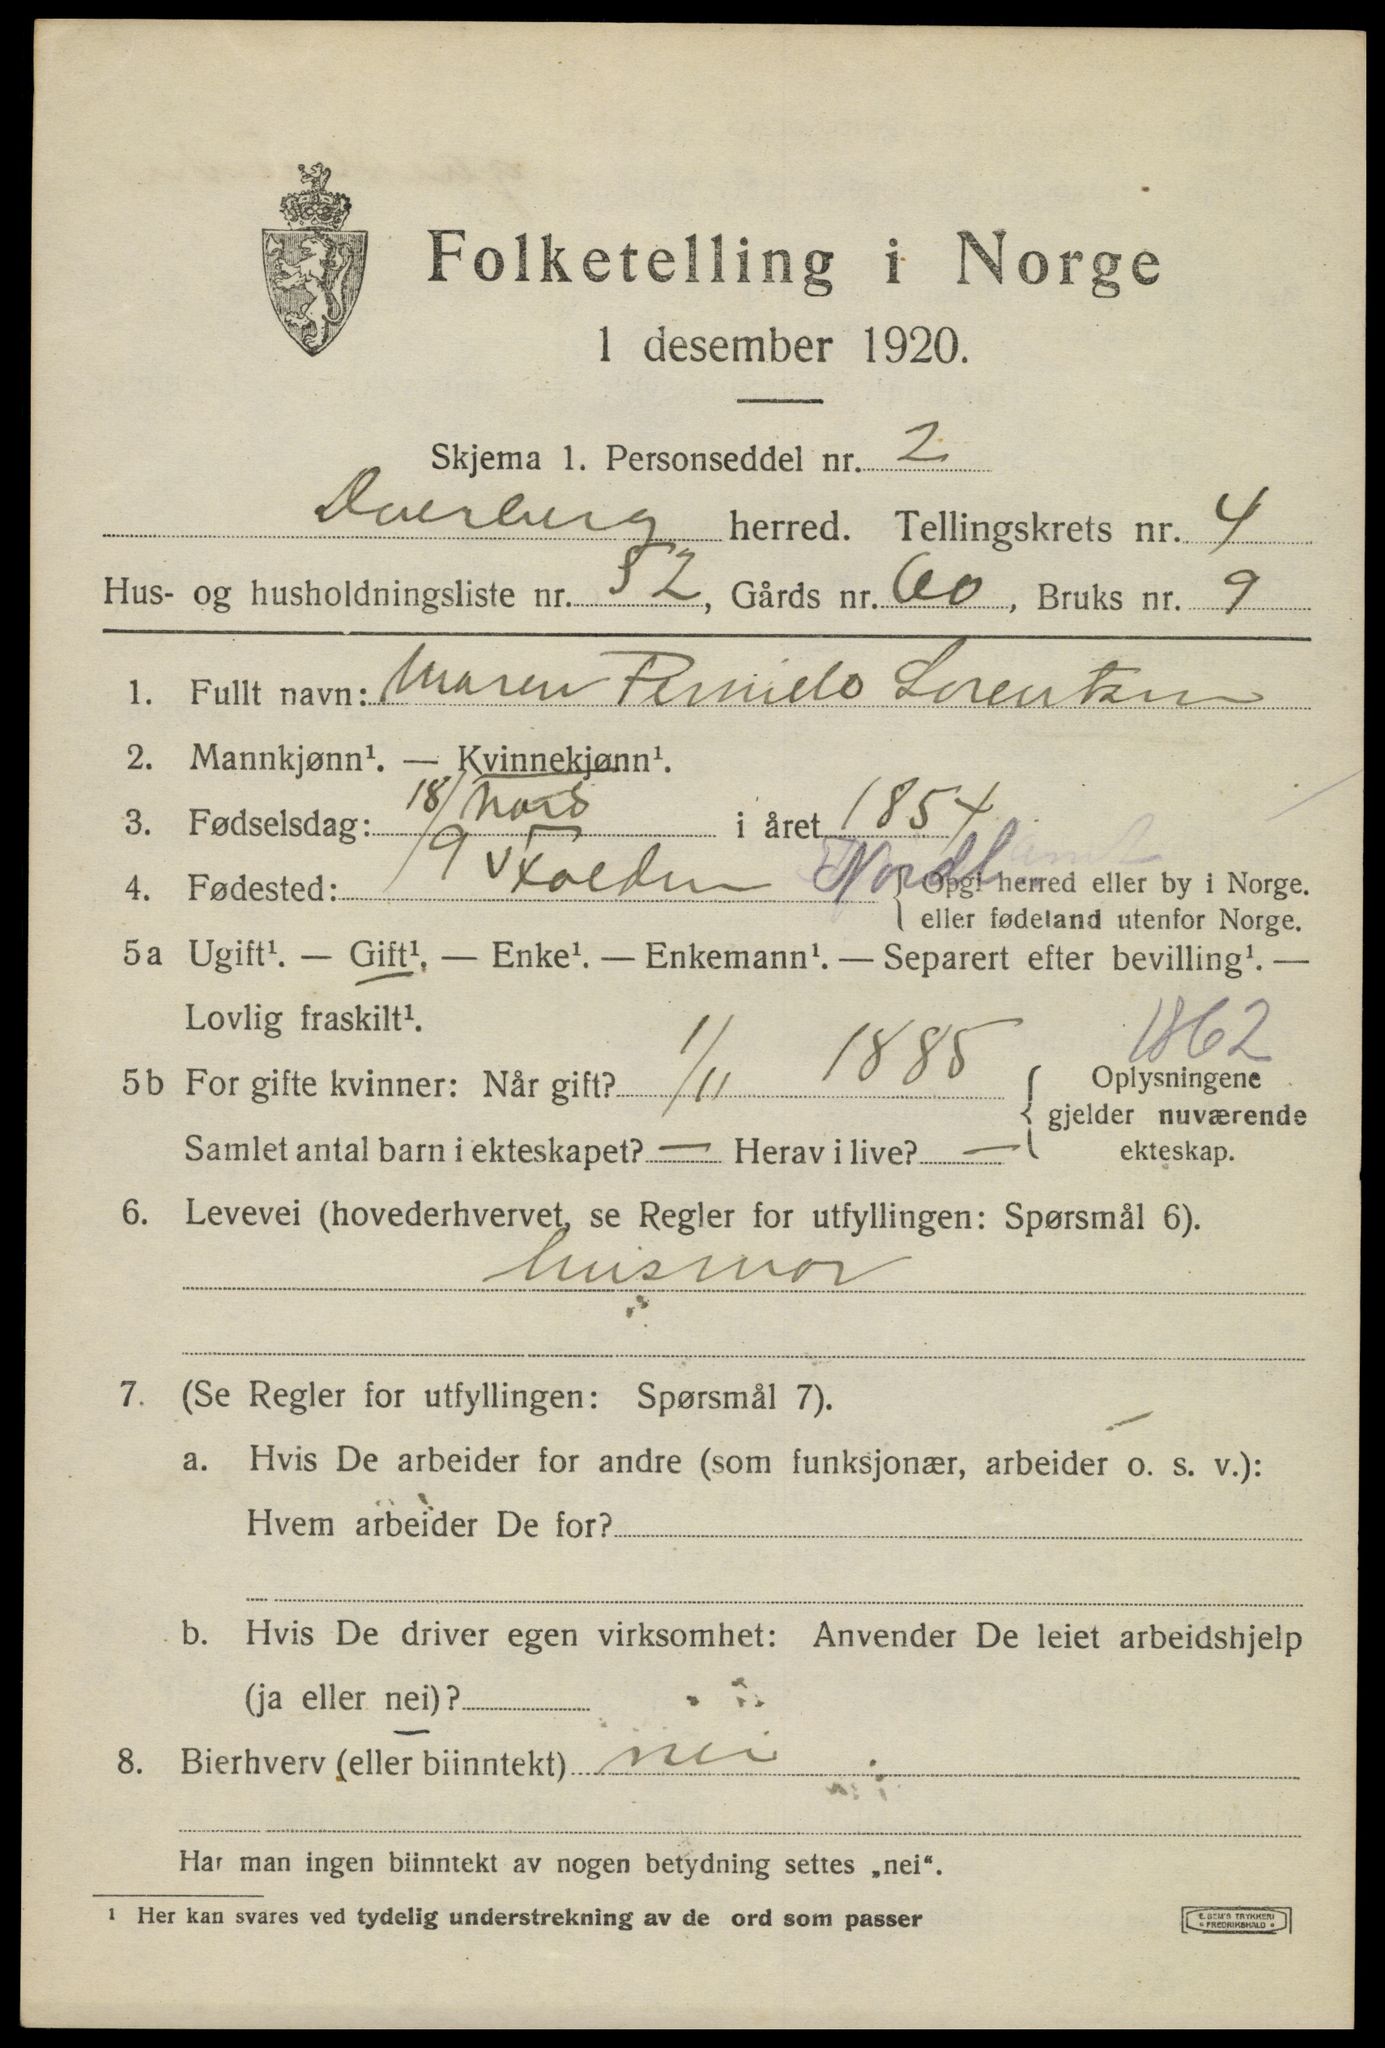 Folketelling i Norge
1 desember 1920.
Skjema 1. Personseddel nr. 2
Dverberg herred. Tellingskrets nr. 4
Hus- og husholdningsliste nr. 52, Gårds nr. 60, Bruks nr. 9
1. Fullt navn: Maren Lorentsen
2. Mannkjønn¹. — Kvinnekjønn¹.
3. Fødselsdag: 18/9 i året 1854
4. Fødested: Nordl { Opgi herred eller by i Norge.
eller fødeland utenfor Norge.
5a Ugift¹. — Gift¹. — Enke¹. — Enkemann¹. — Separert efter bevilling¹. —
Lovlig fraskilt¹.
1862
5b For gifte kvinner: Når gift? 1/11 1885 { Oplysningene
gjelder nuværende
Samlet antal barn i ekteskapet? — Herav i live? — ekteskap.
6. Levevei (hovederhvervet, se Regler for utfyllingen: Spørsmål 6).
husmor
7. (Se Regler for utfyllingen: Spørsmål 7).
a. Hvis De arbeider for andre (som funksjonær, arbeider o. s. v.):
Hvem arbeider De for?
b. Hvis De driver egen virksomhet: Anvender De leiet arbeidshjelp
(ja eller nei)?
8. Bierhverv (eller biinntekt) nei
Har man ingen biinntekt av nogen betydning settes „nei“.
¹ Her kan svares ved tydelig understrekning av de ord som passer
E. SEM'S TRYKKERI
FREDRIKSHALD